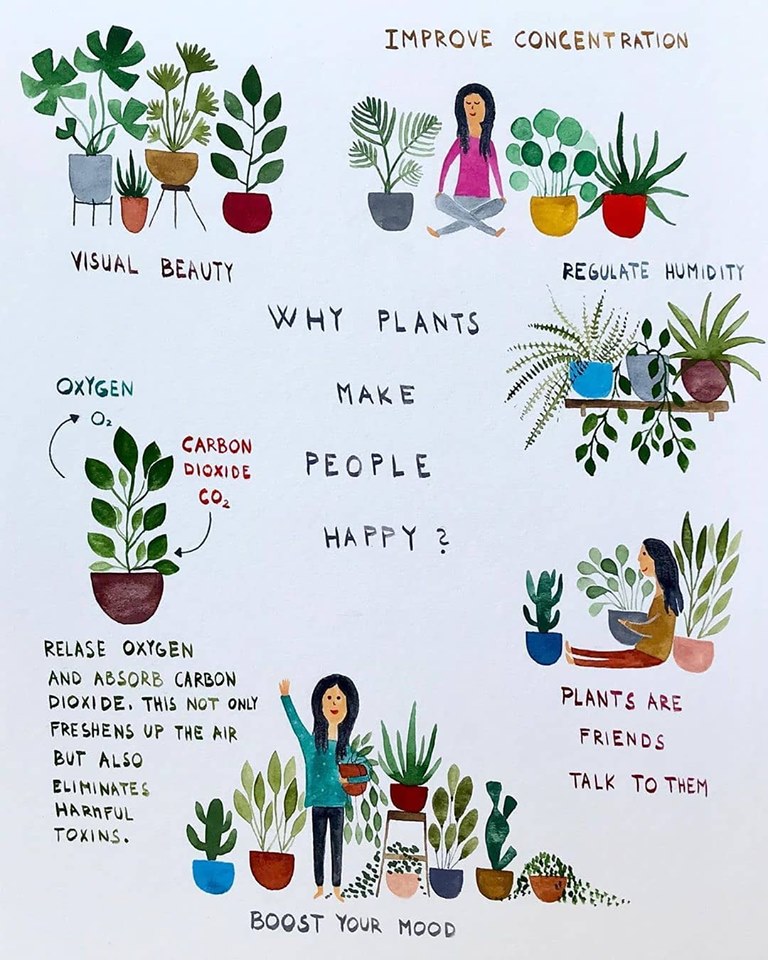 IMPROVE CONCENTRATION
VISUAL BEAUTY
REGULATE HUMIDITY
WHY PLANTS
MAKE
PEOPLE
HAPPY ?
OXYGEN
O₂
CARBON
DIOXIDE
CO₂
RELASE OXYGEN
AND ABSORB CARBON
DIOXIDE. THIS NOT ONLY
FRESHENS UP THE AIR
BUT ALSO
ELIMINATES
HARMFUL
TOXINS.
PLANTS ARE
FRIENDS
TALK TO THEM
BOOST YOUR MOOD